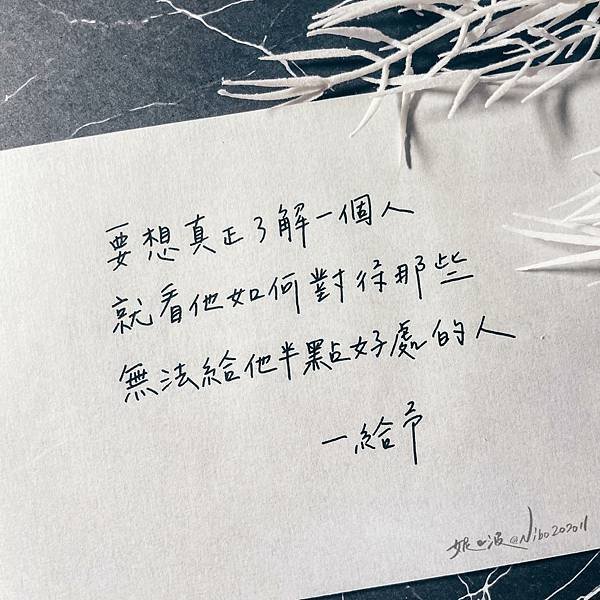 要想真正了解一個人
就看他如何對待那些
無法給他半點好處的人
—給予
妮山波@Nibo202011